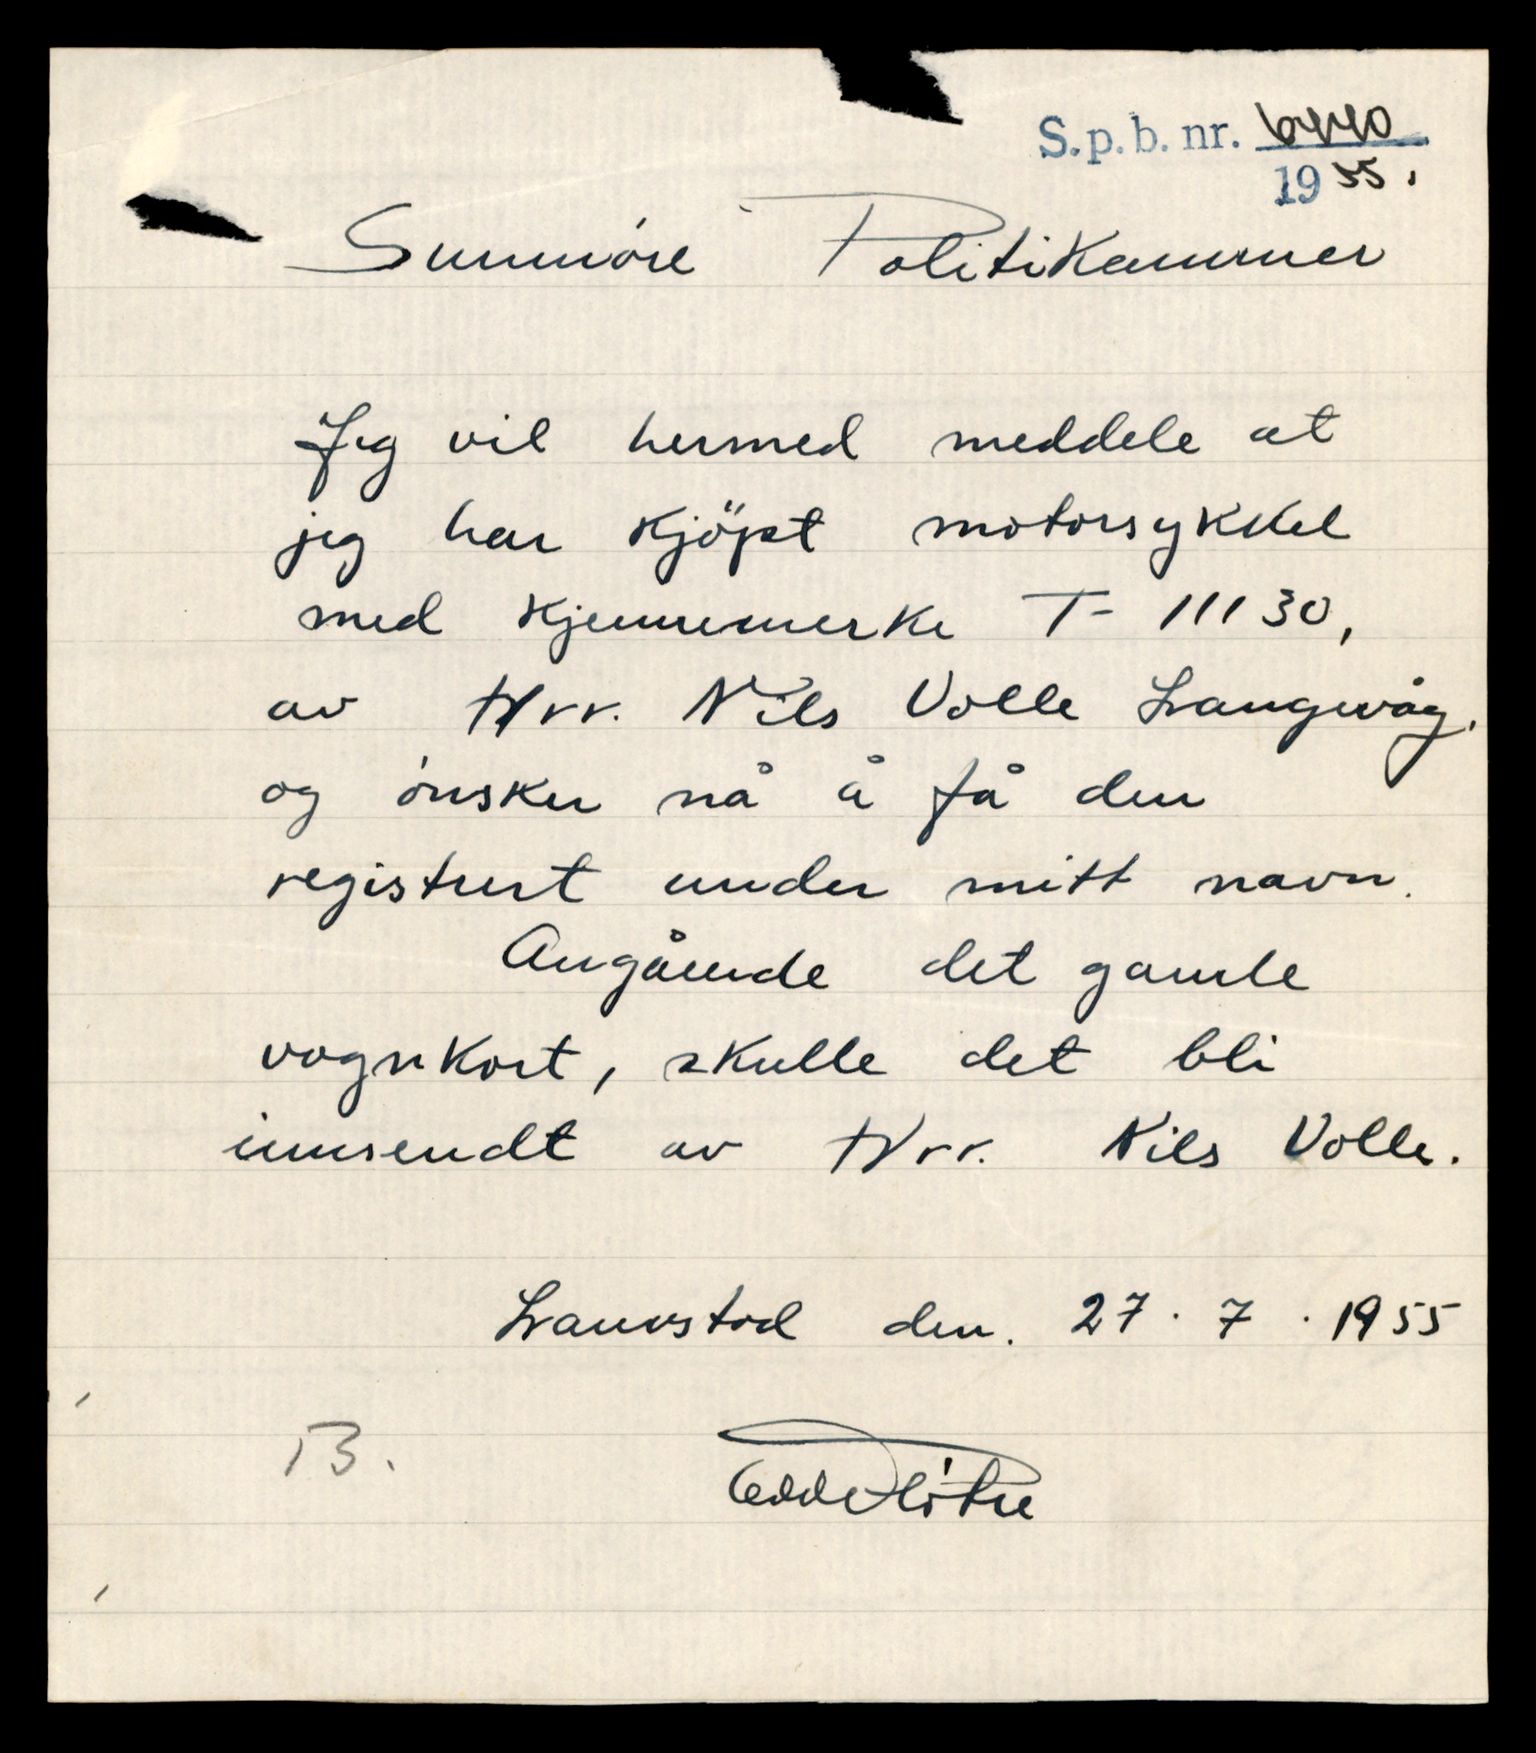 S.p.b. nr. 6440
1955.
Sunnmöre Politikammer
Jeg vil hermed meddele at
jeg har kjöpt motorsykkel
med kjennemerke T- 11130,
av Hrr. Nils Volle Langevåg.
og önsker nå å få den
registrert under mitt navn.
Angående det gamle
vognkort, skulle det bli
innsendt av Hrr. Nils Volle.
den. 27. 7. 1955
B.